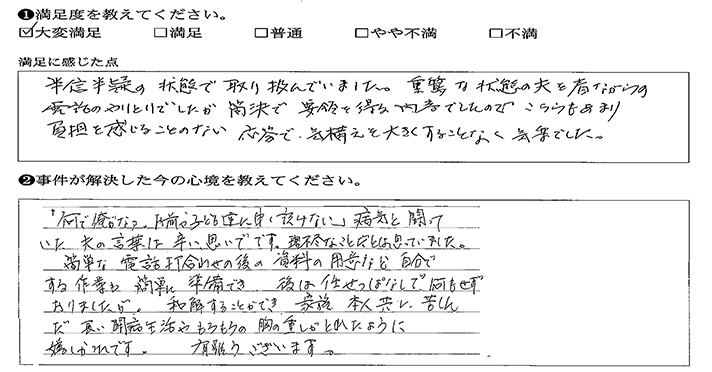 ❶満足度を教えてください。
☑大変満足 □満足 □普通 □やや不満 □不満
満足に感じた点
半信半疑の状態で取り扱んでいました。重篤な状態の夫を看ながらの
電話のやりとりでしたが簡決で要領を得る内容でしたので こちらもあまり
負担を感じることのない応答で、気構えを大きくすることなく気楽でした。
❷事件が解決した今の心境を教えてください。
「何で俺がなった、お前や子ども達に申し訳けない」病気と闘って
いた夫の言葉は辛い思いでです。理不尽なことだとは思っていました。
簡単な電話打合わせの後の資料の用意など自分で
する作業も簡単に準備でき、後は任せっぱなしで何もせず
おりましたが、和解することができ家族本人共に苦しん
だ長い闘病生活やもろもろの胸の重しがとれたように
嬉しかれです。 有難うございます。